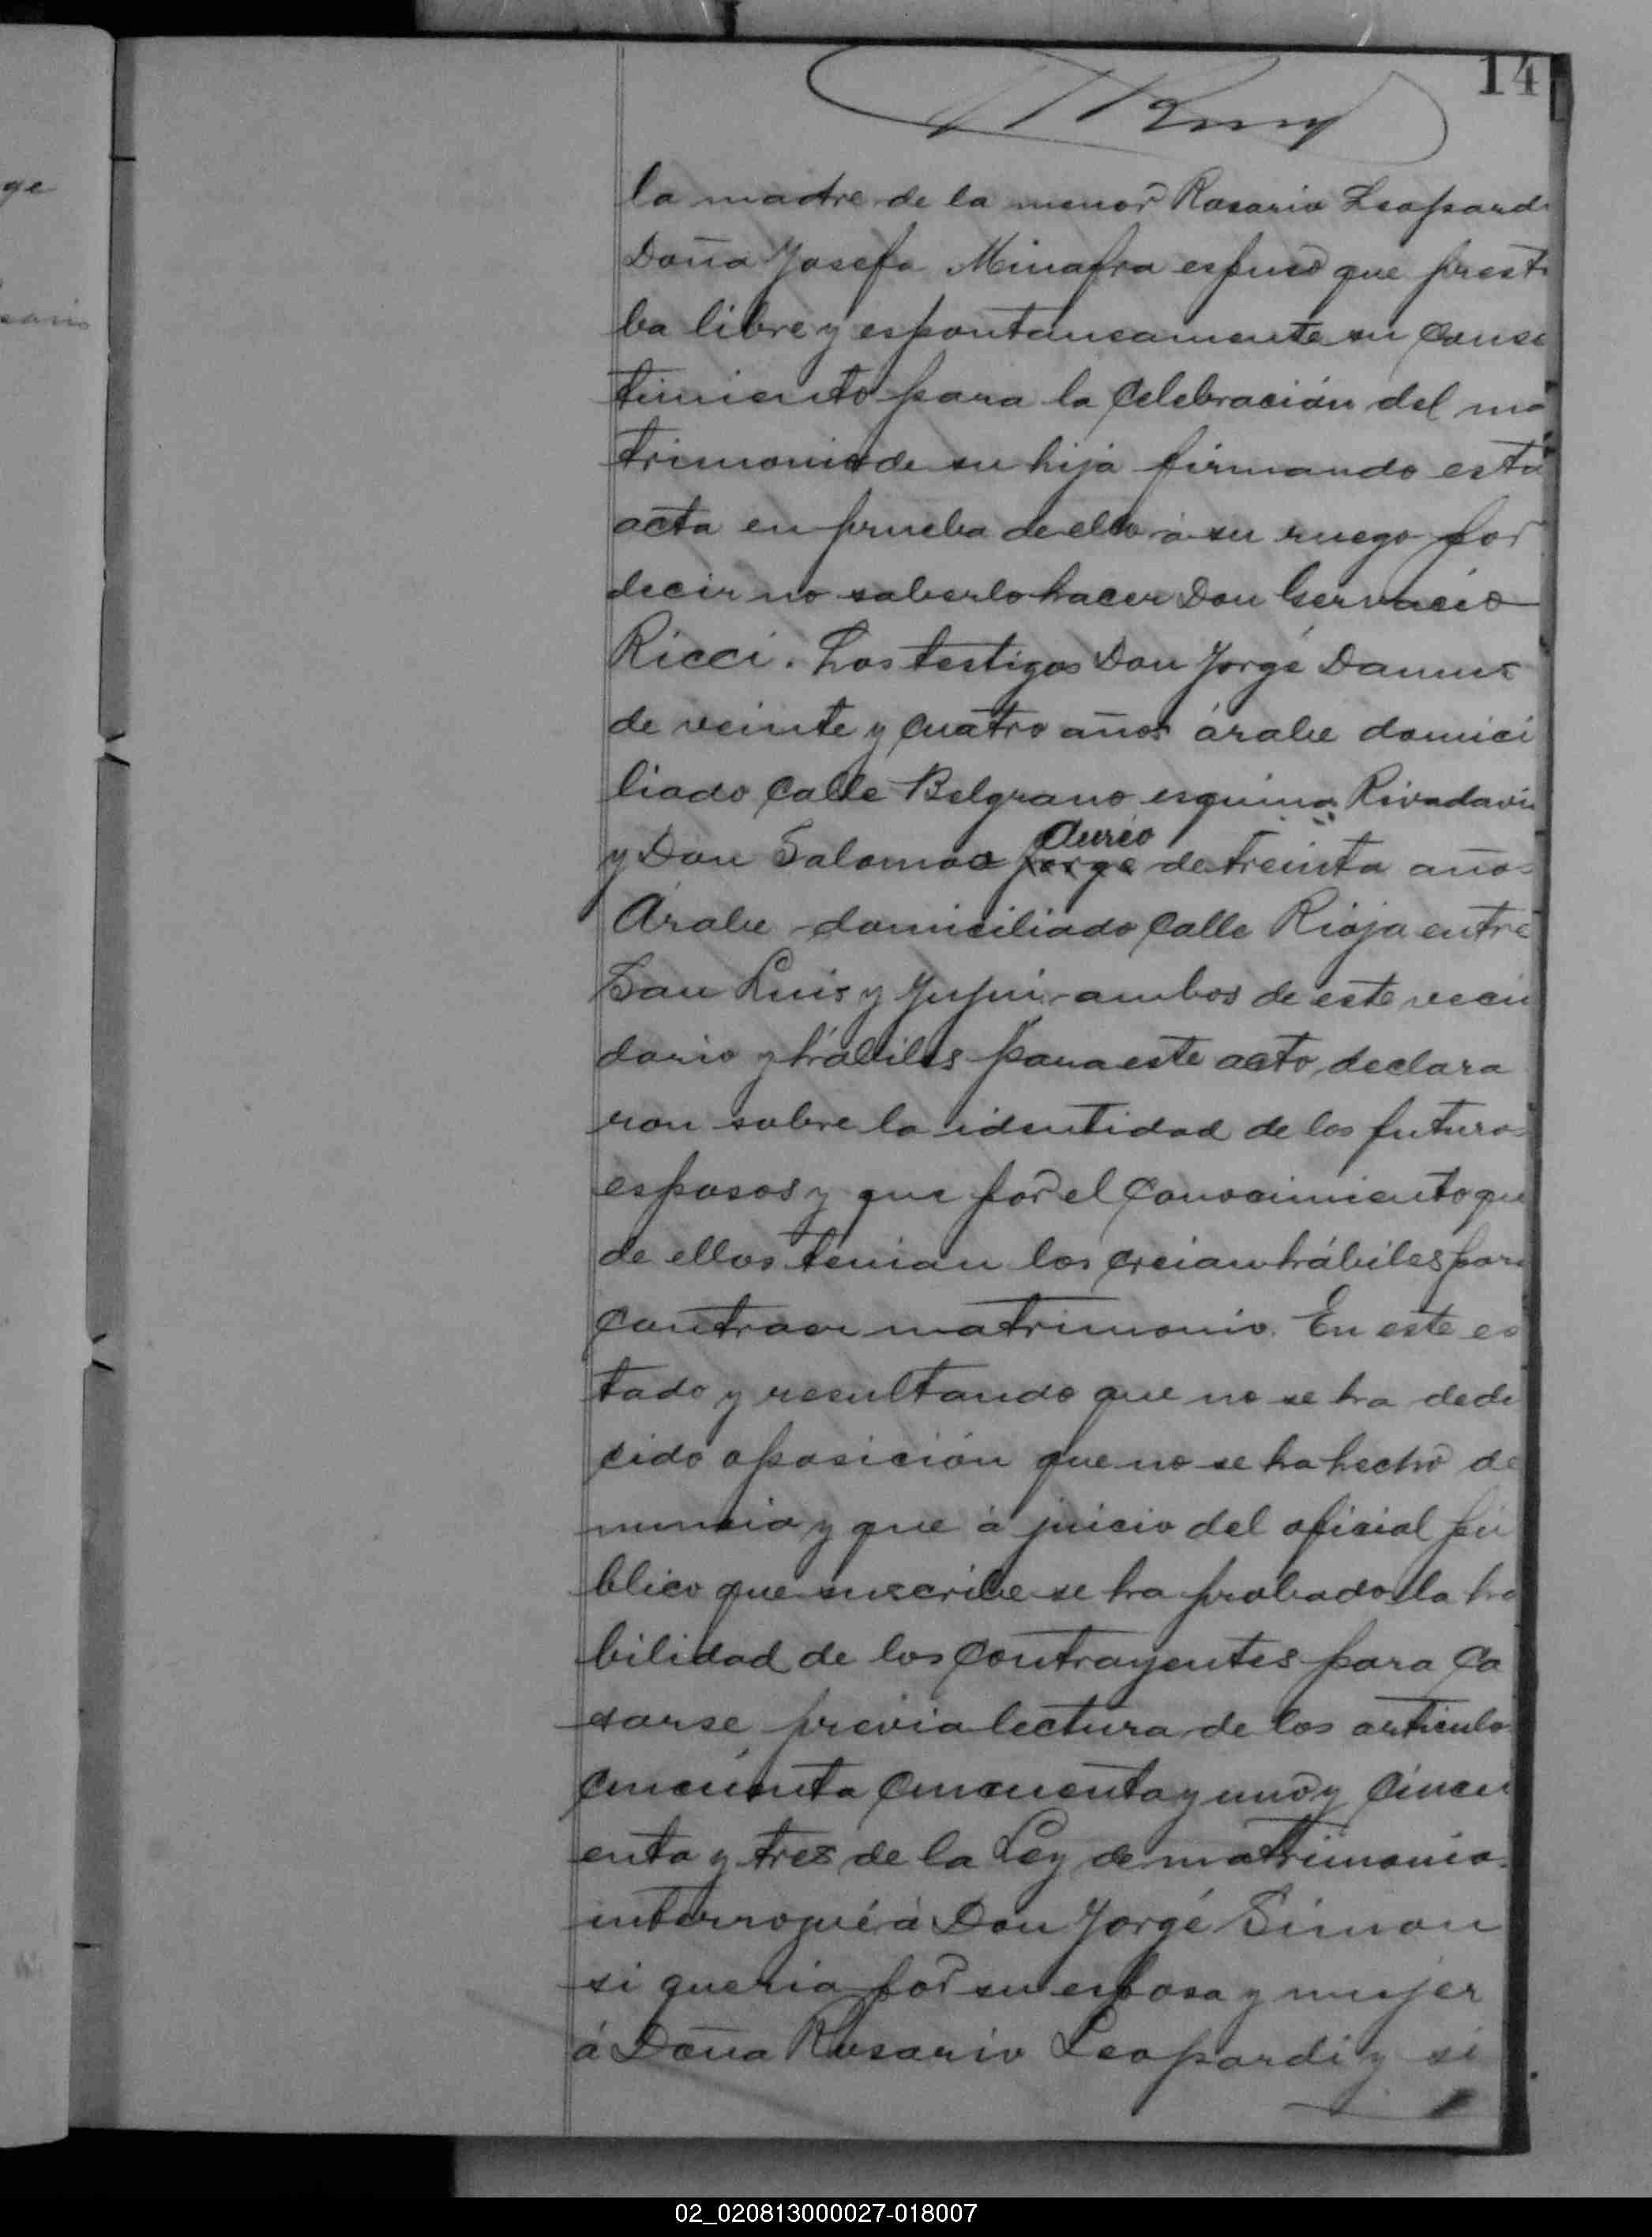 14
la madre de la menor Rosario Leopard
Doña Josefa Minafra espuso que prest
ba libre y espontaneamente su conse
timiento para la celebración del ma
trimonio de su hija firmando esta
acta en prueba de ello á su ruego por
decir no saberlo hacer Don Gervacio
Ricci. Los testigos Don Jorge
de veinte y cuatro años árabe domici
liado calle Belgrano esquina Rivadavi
Aureo
y Don Salomon Jorge de treinta años
Árabe domiciliado calle Rioja entre
San Luis y Jujui ambos de este vecin
dario y hábiles para este acto, declara
ron sobre la identidad de los futuros
esposos y que por el conocimiento que
de ellos tenian los creian hábiles para
contraer matrimonio. En este es
tado y resultando que no se ha dedu
cido oposición que no se ha hecho de
nuncia y que á juicio del oficial pú
blico que suscribe se ha probado la ha
bilidad de los contrayentes para ca
sarse previa lectura de los articulo
cincuenta cincuenta y uno y cincu
enta y tres de la Ley de matrimonio
interrogué á Don Jorge Simon
si queria por su esposa y mujer
á Doña Rosario Leopardi y si
02_020813000027-018007